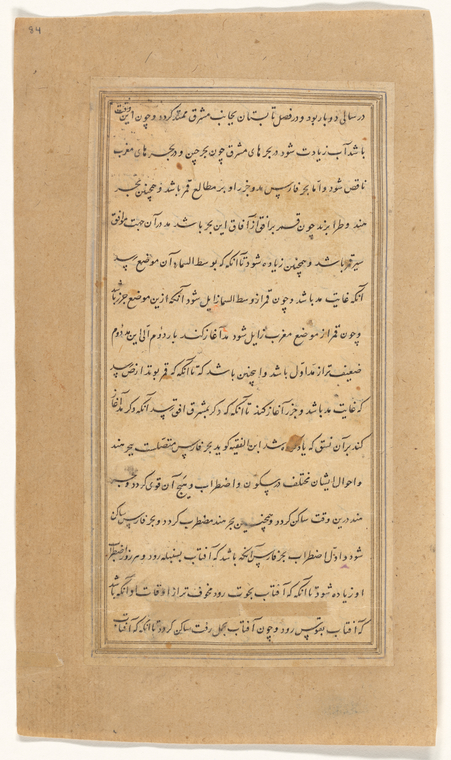 84
در سالی دو بار بود و در فصل تابستان بجانب مشرق ممتد کردد و چون این وقت
باشد آب زیادت شود در بحرهای مشرق چون بحر چین و در بحرهای مغرب
ناقص شود و اما بحر فارس مد و جزر او بر مطالع قمر باشد و همچنین بحر
هند و طرابزند چون قمر بر افقی از آفاق این بحر باشد مد در آن جهت موافق
سیر قمر باشد و همچنین زیاده شود تا آنکه که بوسط السماء آن موضع رسد
آنکه غایت مد باشد و چون قمر از وسط السما زایل شود آنکه ازین موضع جزر باشد
و چون قمر از موضع مغرب زایل شود مد آغاز کند بار دوم الی این مد دوم
ضعیف تر از مد اول باشد و همچنین باشد که تا آنکه که قمر بوتد ارض رسد
که غایت مد باشد و جزر آغاز کند تا آنکه که دکر بمشرق افق رسد آنکه دکر مد آغاز
کند بر آن نسق که یاد کرده شد ابن الفقیه کوید بحر فارس متصلست ببحر هند
و احوال ایشان مختلف در سکون و اضطراب و هیج آن قوی کردد و بحر
هند درین وقت ساکن کردد و همچنین بحر هند مضطرب کردد و بحر فارس ساکن
شود و اول اضطراب بحر فارس آنکه باشد که آفتاب بسنبله رود و هر روز اضطراب
او زیاده شود تا آنکه که آفتاب بحوت رود مخوف تر از اوقات او آنکه باشد
که آفتاب بقوس رود و چون آفتاب بحمل رفت ساکن کردد تا آنکه که آفتاب